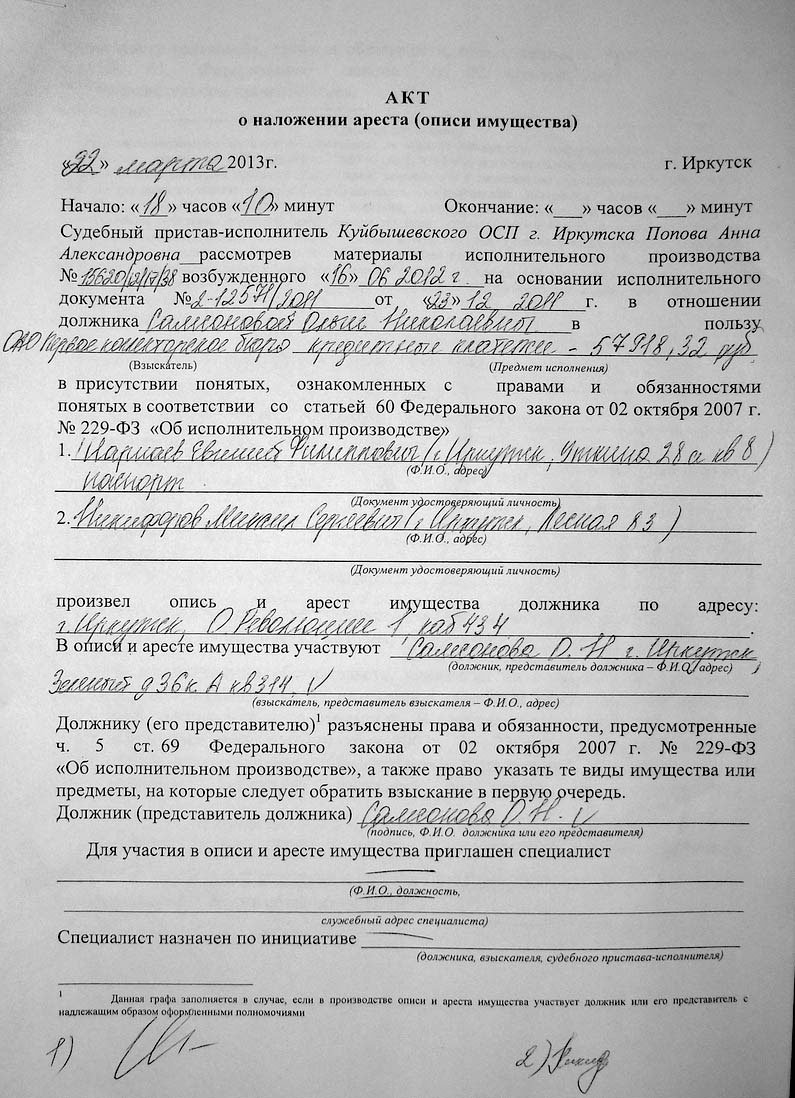 АКТ
о наложении ареста (описи имущества)
«22» марта 2013г. г. Иркутск
Начало: «18» часов «10» минут Окончание: «___» часов «___» минут
Судебный пристав-исполнитель Куйбышевского ОСП г. Иркутска Попова Анна
Александровна рассмотрев материалы исполнительного производства
№ 15620/12/17/38 возбужденного «16» 06 2012 г. на основании исполнительного
документа № 2-1257/2011 от «23» 12 2011 г. в отношении
должника Самсоновой Ольги Николаевны в пользу
ОАО Первое коллекторское бюро кредитные платежи - 57918,32 руб
(Взыскатель) (Предмет исполнения)
в присутствии понятых, ознакомленных с правами и обязанностями
понятых в соответствии со статьей 60 Федерального закона от 02 октября 2007 г.
№ 229-ФЗ «Об исполнительном производстве»
1. Евгений Филиппович (г. Иркутск, Уткина 28а кв 8)
(Ф.И.О., адрес)
паспорт
(Документ удостоверяющий личность)
2. Никифоров Михаил Сергеевич (г. Иркутск, Лесная 83)
(Ф.И.О., адрес)
(Документ удостоверяющий личность)
произвел опись и арест имущества должника по адресу:
г. Иркутск, О Революции 1 каб 434.
В описи и аресте имущества участвуют Самсонова О. Н г. Иркутск
(должник, представитель должника – Ф.И.О, адрес)
Зеленый д 36 к. А кв 314. V
(взыскатель, представитель взыскателя – Ф.И.О., адрес)
Должнику (его представителю)1 разъяснены права и обязанности, предусмотренные
ч. 5 ст. 69 Федерального закона от 02 октября 2007 г. № 229-ФЗ
«Об исполнительном производстве», а также право указать те виды имущества или
предметы, на которые следует обратить взыскание в первую очередь.
Должник (представитель должника) Самсонова О. Н. V
(подпись, Ф.И.О. должника или его представителя)
Для участия в описи и аресте имущества приглашен специалист
(Ф.И.О., должность,
служебный адрес специалиста)
Специалист назначен по инициативе
(должника, взыскателя, судебного пристава-исполнителя)
1 Данная графа заполняется в случае, если в производстве описи и ареста имущества участвует должник или его представитель с
надлежащим образом оформленными полномочиями
1) 2)